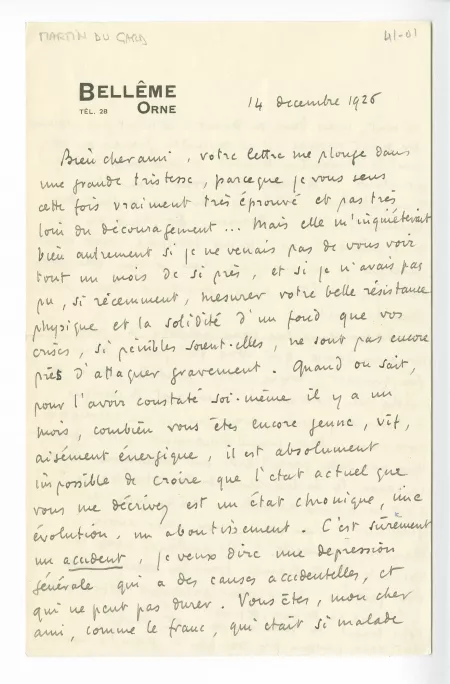 MARTIN DU GARD
41-01
BELLÊME
TÉL. 28 ORNE
14 decembre 1926
Bien cher ami, votre lettre me plonge dans
une grande tristesse, parceque je vous sens
cette fois vraiment très éprouvé et pas très
loin du découragement... Mais elle m'inquiéterait
bien autrement si je ne venais pas de vous voir
tout un mois de si près, et si je n'avais pas
pu, si récemment, mesurer votre belle résistance
physique et la solidité d'un fond que vos
crises, si pénibles soient-elles, ne sont pas encore
près d'attaquer gravement. Quand on sait,
pour l'avoir constaté soi-même il y a un
mois, combien vous êtes encore jeune, vif,
aisément énergique, il est absolument
impossible de croire que l'état actuel que
vous me décrivez est un état chronique, une
évolution, un aboutissement. C'est sûrement
un accident, je veux dire une depression
générale qui a des causes accidentelles, et
qui ne peut pas durer. Vous êtes, mon cher
ami, comme le franc, qui était si malade